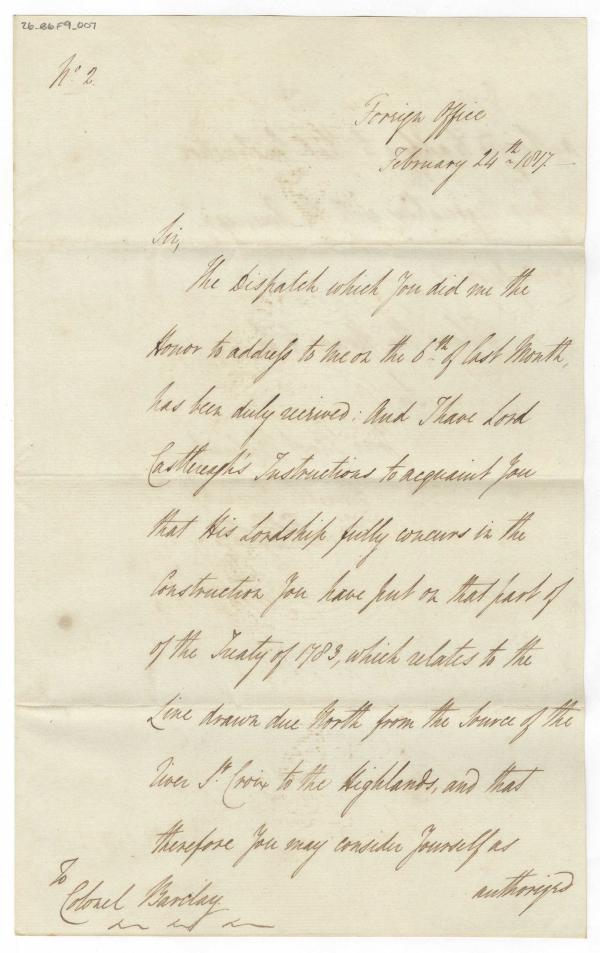 26-B6F9_007
No. 2.
Foreign Office
February 24th 1817.
Sir,
The Dispatch which You did me the
Honor to address to me on the 6th of last Month,
has been duly received: And I have Lord
Castlereagh's Instructions to acquaint You
that His Lordship fully concurs in the
Construction You have put on that part of
of the Treaty of 1783, which relates to the
Line drawn due North from the Source of the
River St. Croix to the Highlands, and that
therefore You may consider Yourself as
authorized
To
Colonel Barclay